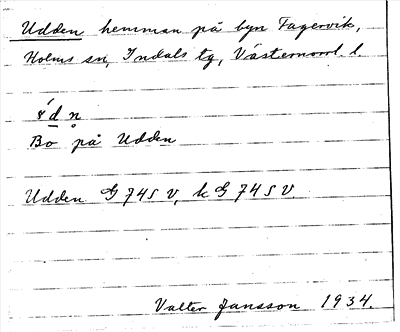 Udden hemman på byn Fagervik,
Holms sn, Indals tg, Västernorrl. l.
Bo på Udden
Udden G 745 V, k G 745 V.
Valter Jansson 1934.